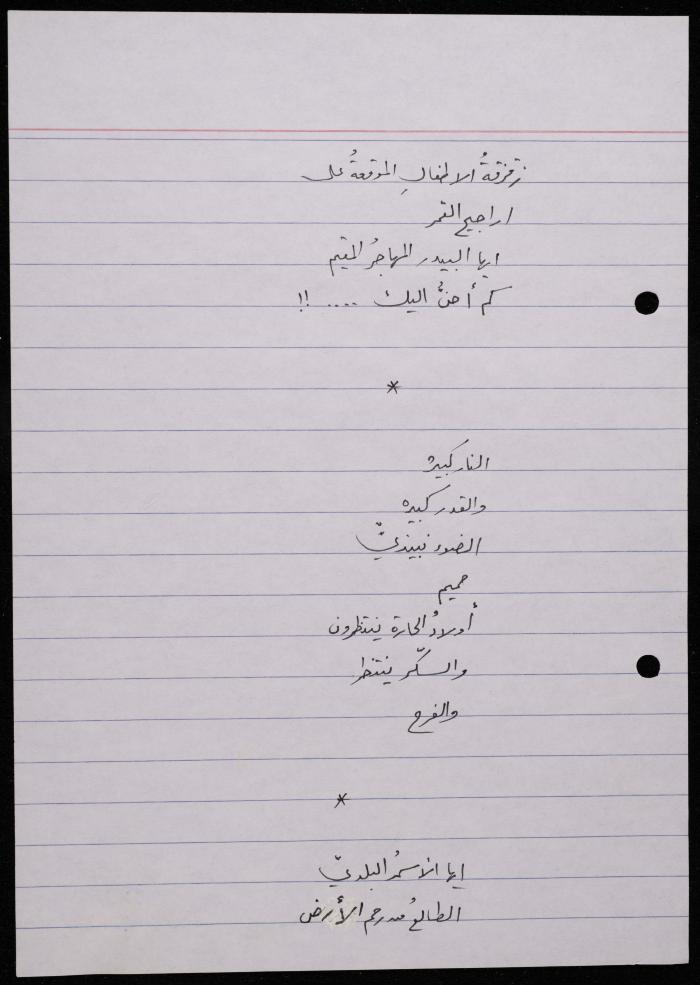 زقزقةُ الاطفالِ الموقعةُ على
اراجيح القمر
ايها البيدر المهاجرُ المقيم
كم أحنُّ اليك .... !!
*
النار كبيره
والقدر كبيره
الضوء نبيذيّ
حميم
أولادُ الحارة ينتظرون
والسكّر ينتظر
والفرح
*
ايها الاسمرُ البلديّ
الطالعُ من رحم الأرض